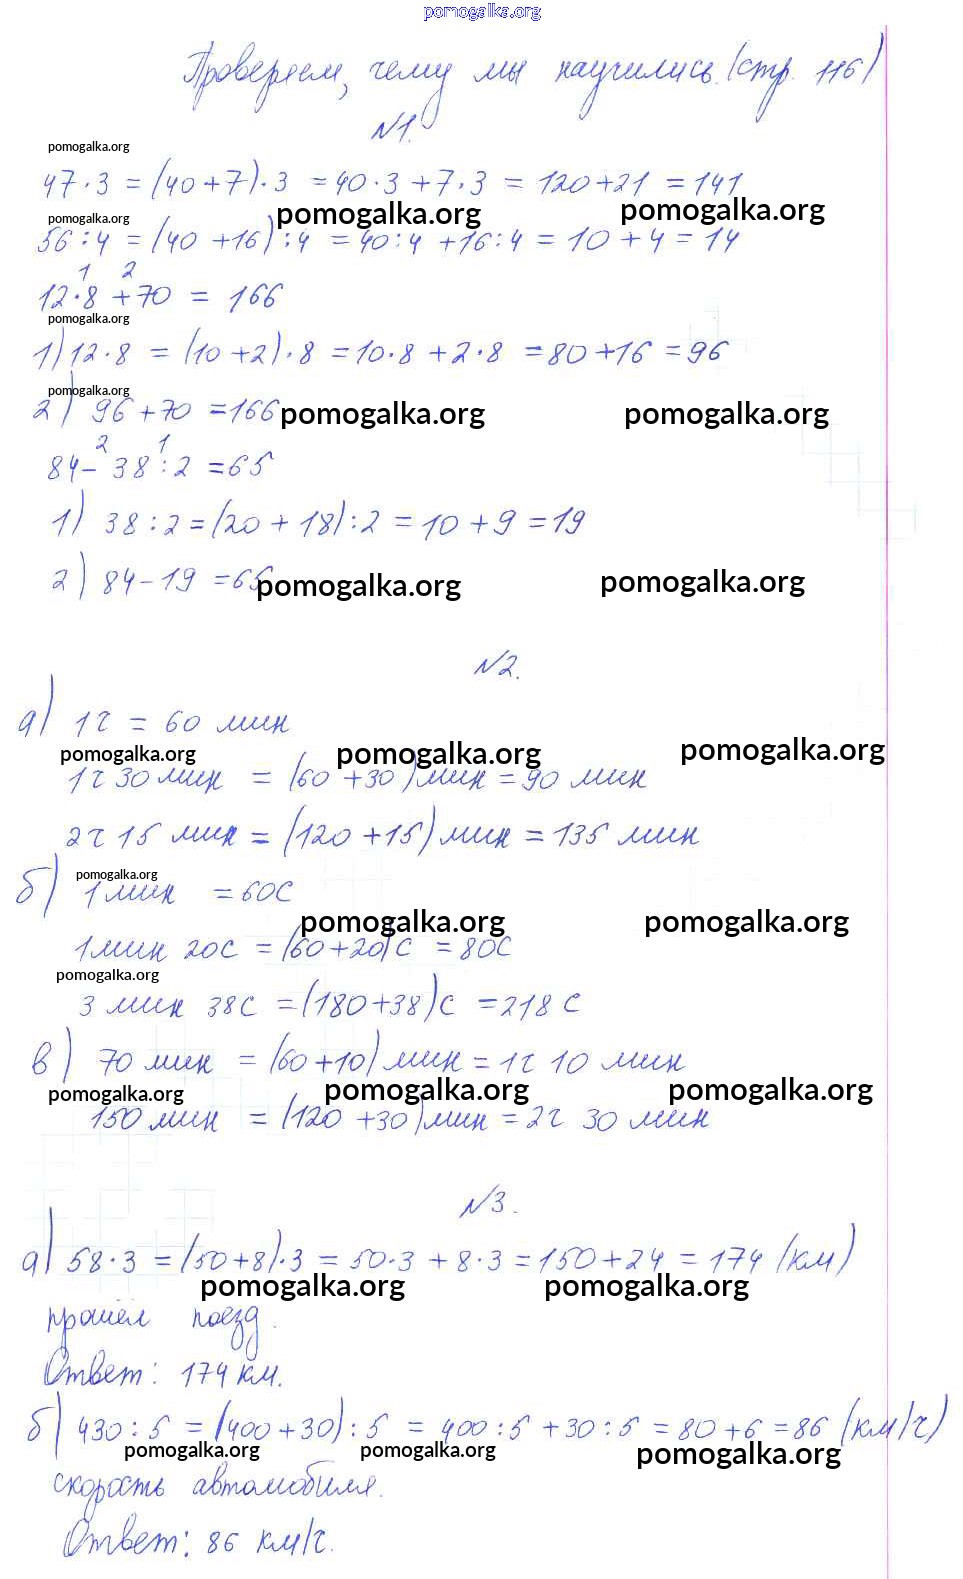 pomogalka.org
Проверяем, чему мы научились. (стр. 116)
№1.
pomogalka.org
47·3 = (40+7)·3 = 40·3+7·3 = 120+21 = 141
pomogalka.org pomogalka.org pomogalka.org
56:4 = (40+16):4 = 40:4+16:4 = 10+4 = 14
1 2
12·8+70 = 166
pomogalka.org
1) 12·8 = (10+2)·8 = 10·8+2·8 = 80+16 = 96
pomogalka.org
2) 96+70 = 166 pomogalka.org pomogalka.org
2 1
84-38:2 = 65
1) 38:2 = (20+18):2 = 10+9 = 19
2) 84-19 = 65 pomogalka.org pomogalka.org
№2.
а) 1ч = 60 мин
pomogalka.org pomogalka.org pomogalka.org
1ч 30 мин = (60+30) мин = 90 мин
2ч 15 мин = (120+15) мин = 135 мин
pomogalka.org
б) 1 мин = 60с
pomogalka.org pomogalka.org
1 мин 20с = (60+20)с = 80с
pomogalka.org
3 мин 38с = (180+38)с = 218 с
в) 70 мин = (60+10) мин = 1ч 10 мин
pomogalka.org pomogalka.org pomogalka.org
150 мин = (120+30) мин = 2ч 30 мин
№3.
а) 58·3 = (50+8)·3 = 50·3+8·3 = 150+24 = 174 (км)
pomogalka.org pomogalka.org
прошёл поезд.
Ответ: 174 км.
б) 430:5 = (400+30):5 = 400:5+30:5 = 80+6 = 86 (км/ч)
pomogalka.org pomogalka.org pomogalka.org
скорость автомобиля.
Ответ: 86 км/ч.